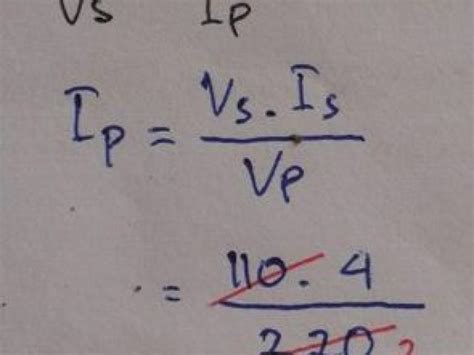 Vs Ip
Ip = Vs . Is
Vp
= 110 . 4
220 2